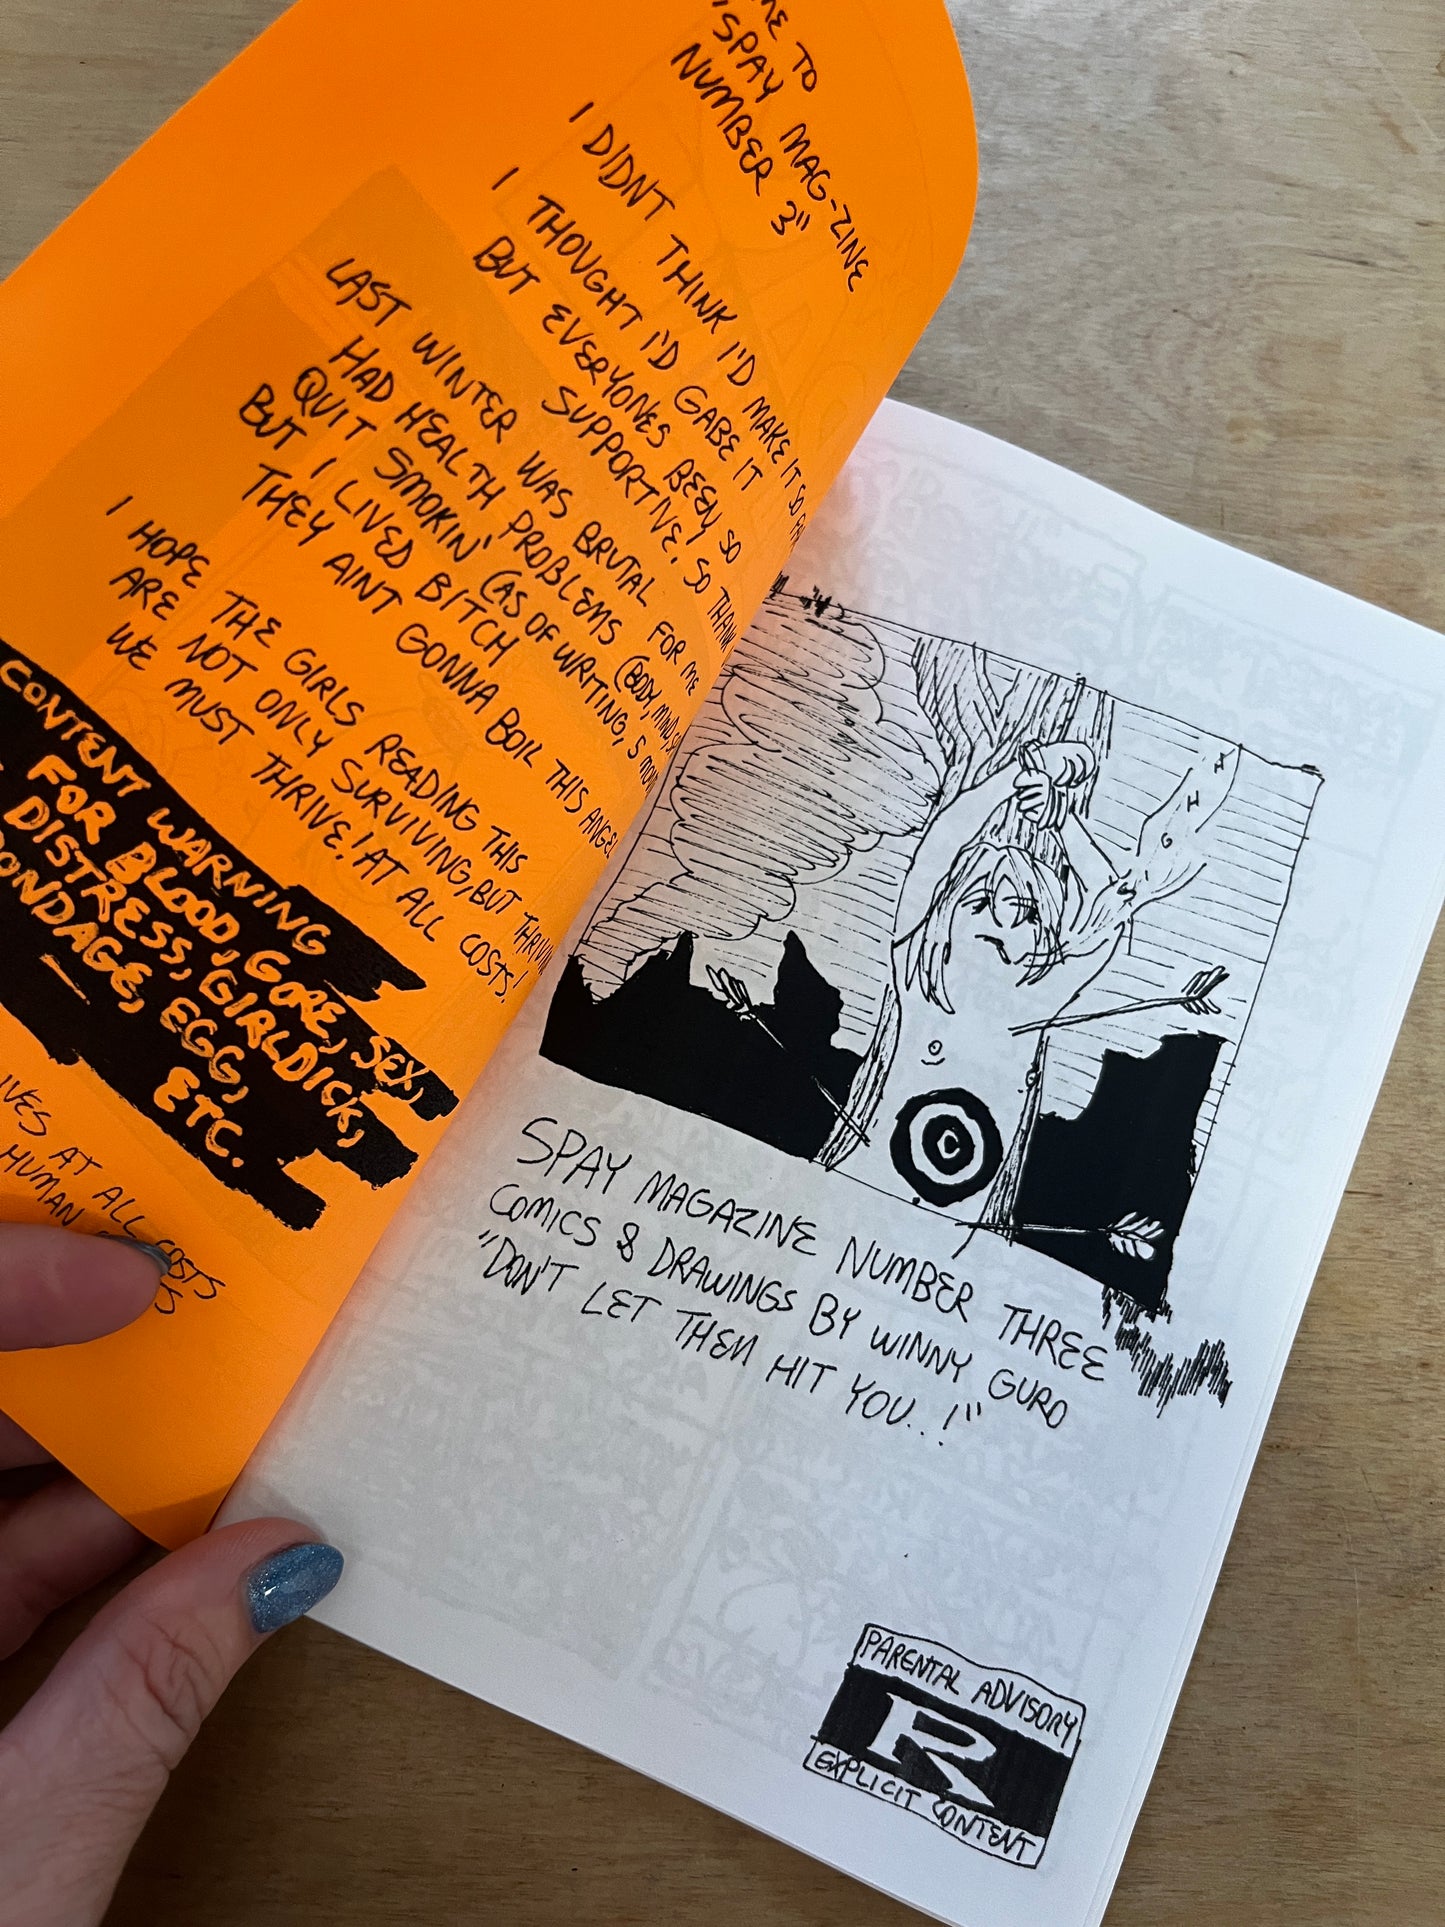 TO
SPAY MAG-ZINE
NUMBER 3"
I DIDNT THINK I'D MAKE IT SO FAR
I THOUGHT I'D GABE IT
BUT EVERYONES BEEN SO
SUPPORTIVE. SO THANK
LAST WINTER WAS BRUTAL FOR ME
HAD HEALTH PROBLEMS (BODY, MIND,
QUIT SMOKIN' (AS OF WRITING, 5
BUT I LIVED BITCH
THEY AINT GONNA BOIL THIS ANGEL
I HOPE THE GIRLS READING THIS
ARE NOT ONLY SURVIVING, BUT THRIVIN
WE MUST THRIVE! AT ALL COSTS!
CONTENT WARNING
FOR BLOOD, GORE, SEX,
DISTRESS, GIRLDICK,
BONDAGE, EGG,
ETC.
AT ALL COSTS
HUMAN
H
H
G
C
SPAY MAGAZINE NUMBER THREE
COMICS & DRAWINGS BY WINNY GURO
"DON'T LET THEM HIT YOU..!"
PARENTAL ADVISORY
R
EXPLICIT CONTENT